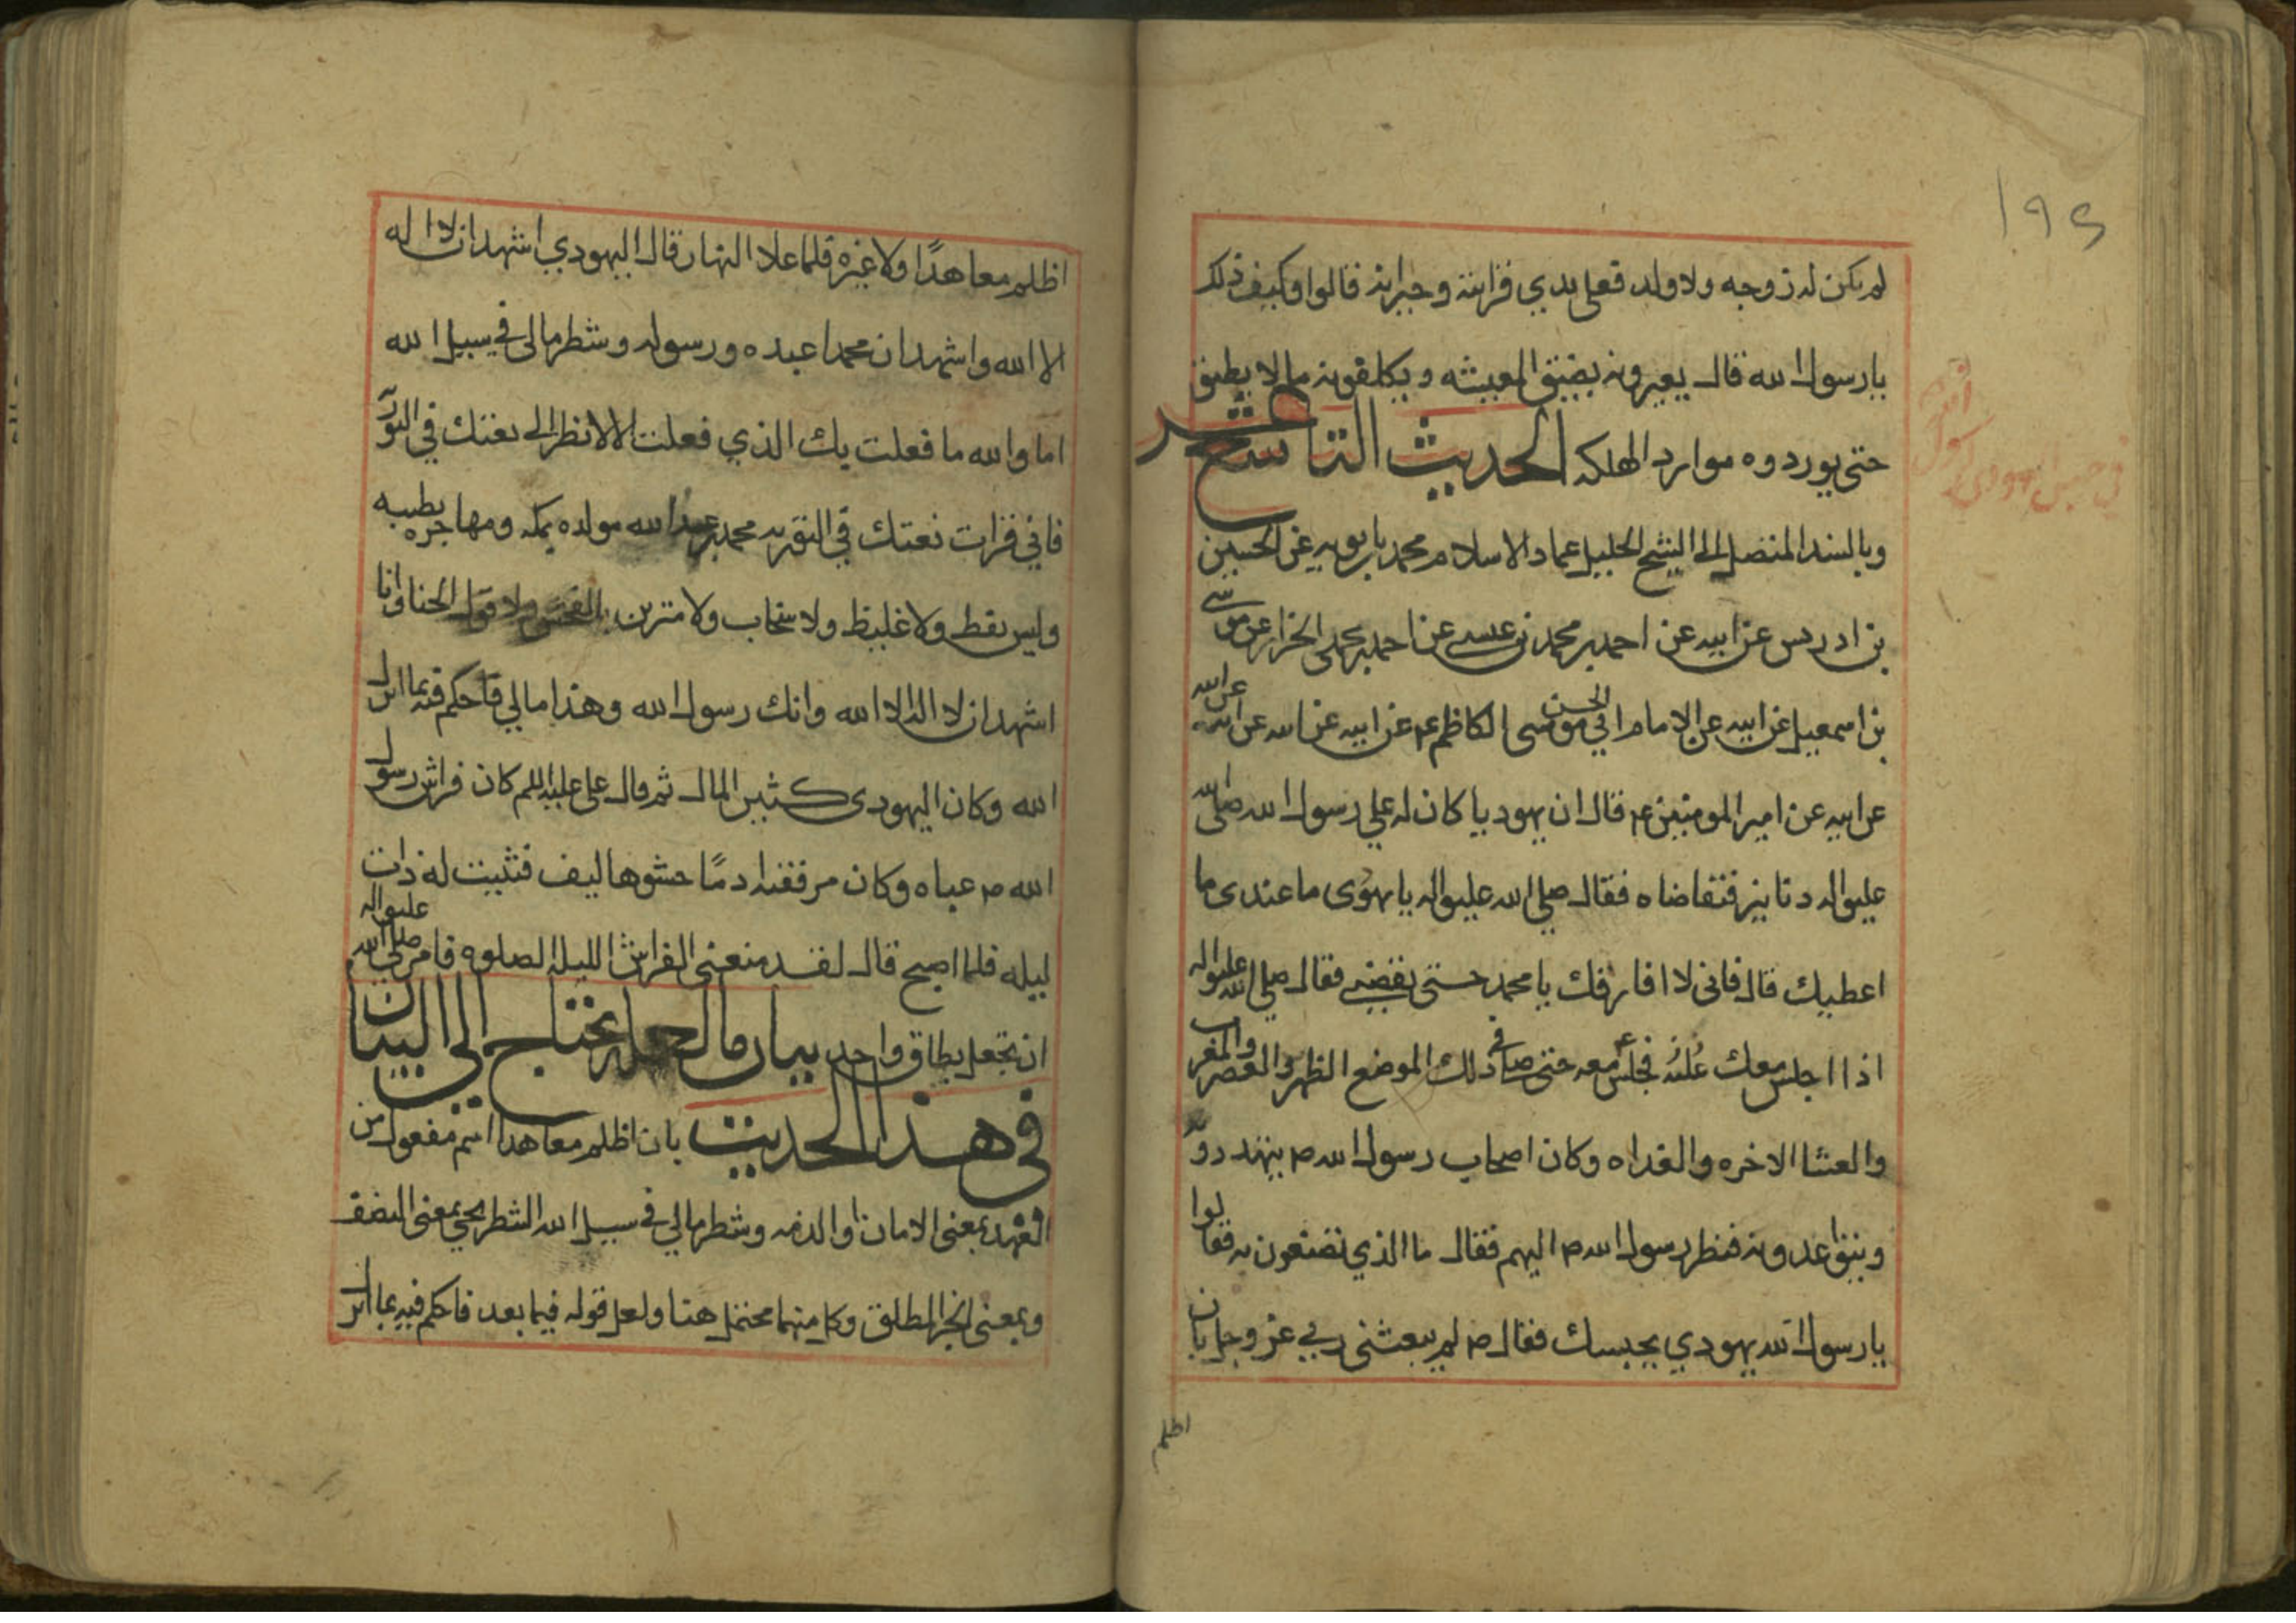 ١٩٤
لم يكن له زوجه ولا ولد فعلى يدي قرابته وجيرانه قالوا وكيف ذلك
يا رسول الله قال يعيرونه بضيق المعيشه ويكلفونه ما لا يطيق
حتى يوردوه موارد الهلكه الحديث التاسع عشر
وبالسند المتصل الى الشيخ الجليل عماد الاسلام محمد بن بابويه عن الحسين
بن ادريس عن ابيه عن احمد بن محمد بن عيسى عن احمد بن محمد الخزاز عن موسى
بن اسمعيل عن ابيه عن الامام ابي الحسن موسى الكاظم ع عن ابيه عن ابيه عن ابيه عن ابيه
عن ابيه عن امير المومنين ع قال ان يهوديا كان له على رسول الله صلى الله
عليه واله دنانير فتقاضاه فقال صلى الله عليه واله يا يهودى ما عندى ما
اعطيك قال فانى لا افارقك يا محمد حتى تقضينى فقال صلى الله عليه واله
اذا اجلس معك فجلس ع معه حتى صلى في ذلك الموضع الظهر والعصر والمغرب
والعشا الاخره والغداه وكان اصحاب رسول الله ص يتهددونه
ويتواعدونه فنظر رسول الله ص اليهم فقال ما الذي تصنعون به فقالوا
يا رسول الله يهودي يحبسك فقال ص لم يبعثنى ربي عز وجل بان
اظلم
في حبس اليهودي لرسول الله
اظلم معاهدًا ولا غيره فلما علا النهار قال اليهودي اشهد ان لا اله
الا الله واشهد ان محمدا عبده ورسوله وشطر مالى في سبيل الله
اما والله ما فعلت بك الذي فعلت الا لانظر الى نعتك في التورية
فاني قرات نعتك في التوريه محمد بن عبد الله مولده بمكه ومهاجره بطيبه
وليس بفظ ولا غليظ ولا سخاب ولا متزين بالفحش ولا قول الخنا وانا
اشهد ان لا اله الا الله وانك رسول الله وهذا مالي فاحكم فيه بما انزل
الله وكان اليهودى كثير المال ثم قال على عليه السلم كان فراش رسول
الله ص عباه وكان مرفقته ادمًا حشوها ليف فثنيت له ذات
ليله فلما اصبح قال لقد منعنى الفراش الليلة الصلوه فامر صلى الله عليه واله
ان تجعل بطاق واحد بيان ما لعله يحتاج الى البيان
في هذا الحديث بان اظلم معاهدا اسم مفعول من
العهد بمعنى الامان او الذمه وشطر مالي في سبيل الله الشطر يجي بمعنى النصف
وبمعنى الجزء المطلق وكل منهما محتمل هنا ولعل قوله فيما بعد فاحكم فيه بما انزل